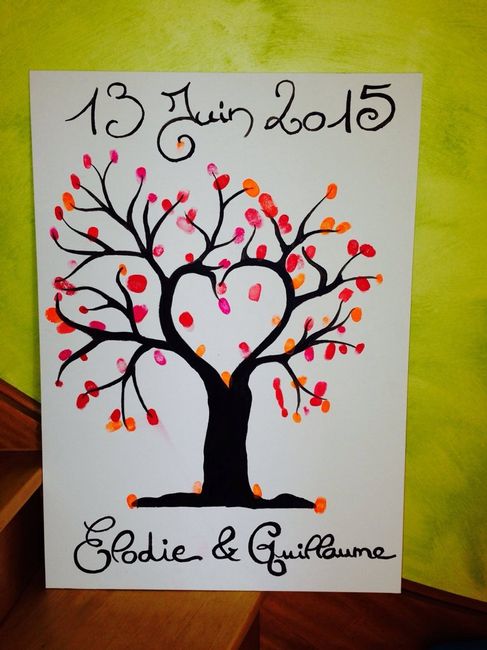 13 Juin 2015
Elodie & Guillaume